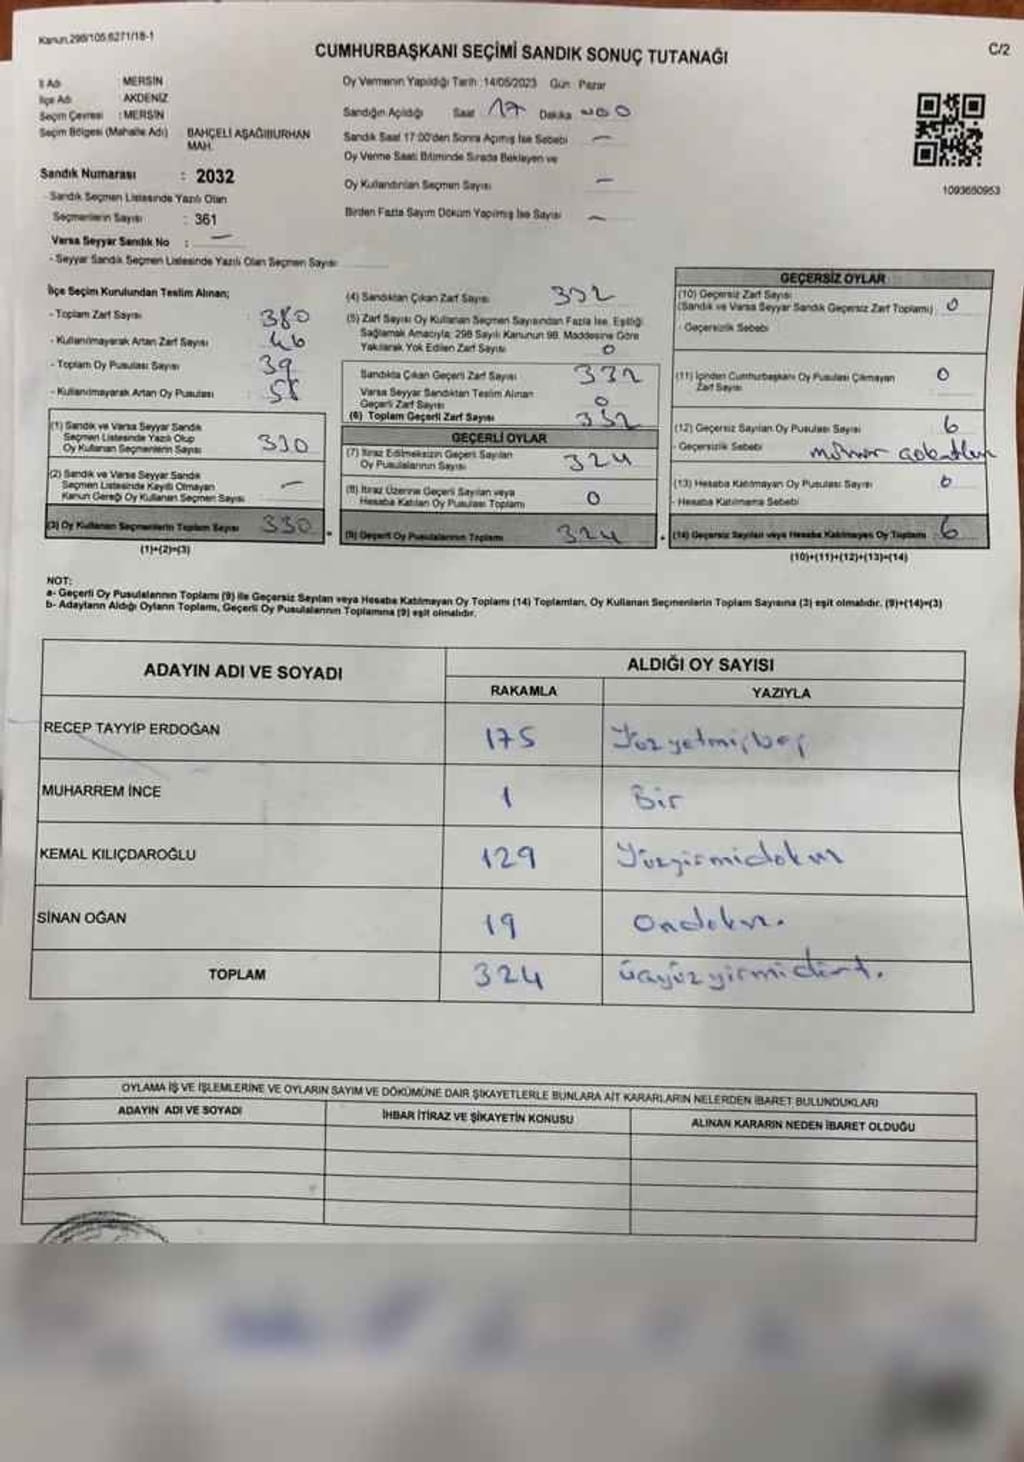 Kanun.298/105.6271/18-1
CUMHURBAŞKANI SEÇİMİ SANDIK SONUÇ TUTANAĞI
C/2
İl Adı : MERSİN
İlçe Adı : AKDENİZ
Seçim Çevresi : MERSİN
Seçim Bölgesi (Mahalle Adı) BAHÇELİ AŞAĞIBURHAN MAH.
Sandık Numarası : 2032
- Sandık Seçmen Listesinde Yazılı Olan
Seçmenlerin Sayısı : 361
Varsa Seyyar Sandık No : —
- Seyyar Sandık Seçmen Listesinde Yazılı Olan Seçmen Sayısı
Oy Vermenin Yapıldığı Tarih :14/05/2023 Gün : Pazar
Sandığın Açıldığı Saat 17 Dakika 00
Sandık Saat 17:00'den Sonra Açılmış İse Sebebi —
Oy Verme Saati Bitiminde Sırada Bekleyen ve
Oy Kullandırılan Seçmen Sayısı —
Birden Fazla Sayım Döküm Yapılmış İse Sayısı —
1093650953
İlçe Seçim Kurulundan Teslim Alınan;
- Toplam Zarf Sayısı 380
- Kullanılmayarak Artan Zarf Sayısı 46
- Toplam Oy Pusulası Sayısı 39
- Kullanılmayarak Artan Oy Pusulası
(1) Sandık ve Varsa Seyyar Sandık
Seçmen Listesinde Yazılı Olup
Oy Kullanan Seçmenlerin Sayısı 330
(2) Sandık ve Varsa Seyyar Sandık
Seçmen Listesinde Kayıtlı Olmayan
Kanun Gereği Oy Kullanan Seçmen Sayısı —
(3) Oy Kullanan Seçmenlerin Toplam Sayısı 330
(1)+(2)=(3)
(4) Sandıktan Çıkan Zarf Sayısı 332
(5) Zarf Sayısı Oy Kullanan Seçmen Sayısından Fazla İse, Eşitliği
Sağlamak Amacıyla; 298 Sayılı Kanunun 98. Maddesine Göre
Yakılarak Yok Edilen Zarf Sayısı 0
Sandıkta Çıkan Geçerli Zarf Sayısı 332
Varsa Seyyar Sandıktan Teslim Alınan
Geçerli Zarf Sayısı 0
(6) Toplam Geçerli Zarf Sayısı 332
GEÇERLİ OYLAR
(7) İtiraz Edilmeksizin Geçerli Sayılan
Oy Pusulalarının Sayısı 324
(8) İtiraz Üzerine Geçerli Sayılan veya
Hesaba Katılan Oy Pusulası Toplamı 0
(9) Geçerli Oy Pusulalarının Toplamı 324
GEÇERSİZ OYLAR
(10) Geçersiz Zarf Sayısı
(Sandık ve Varsa Seyyar Sandık Geçersiz Zarf Toplamı) 0
- Geçersizlik Sebebi
(11) İçinden Cumhurbaşkanı Oy Pusulası Çıkmayan
Zarf Sayısı 0
(12) Geçersiz Sayılan Oy Pusulası Sayısı 6
- Geçersizlik Sebebi
(13) Hesaba Katılmayan Oy Pusulası Sayısı 0
- Hesaba Katılmama Sebebi
(14) Geçersiz Sayılan veya Hesaba Katılmayan Oy Toplamı 6
(10)+(11)+(12)+(13)=(14)
NOT:
a- Geçerli Oy Pusulalarının Toplamı (9) ile Geçersiz Sayılan veya Hesaba Katılmayan Oy Toplamı (14) Toplamları, Oy Kullanan Seçmenlerin Toplam Sayısına (3) eşit olmalıdır. (9)+(14)=(3)
b- Adayların Aldığı Oyların Toplamı, Geçerli Oy Pusulalarının Toplamına (9) eşit olmalıdır.
ADAYIN ADI VE SOYADI
ALDIĞI OY SAYISI
RAKAMLA YAZIYLA
RECEP TAYYİP ERDOĞAN 175 Yüzyetmişbeş
MUHARREM İNCE 1 Bir
KEMAL KILIÇDAROĞLU 129 Yüzyirmidokuz
SİNAN OĞAN 19 Ondokuz.
TOPLAM 324 üçyüzyirmidört.
OYLAMA İŞ VE İŞLEMLERİNE VE OYLARIN SAYIM VE DÖKÜMÜNE DAİR ŞİKAYETLERLE BUNLARA AİT KARARLARIN NELERDEN İBARET BULUNDUKLARI
ADAYIN ADI VE SOYADI İHBAR İTİRAZ VE ŞİKAYETİN KONUSU ALINAN KARARIN NEDEN İBARET OLDUĞU